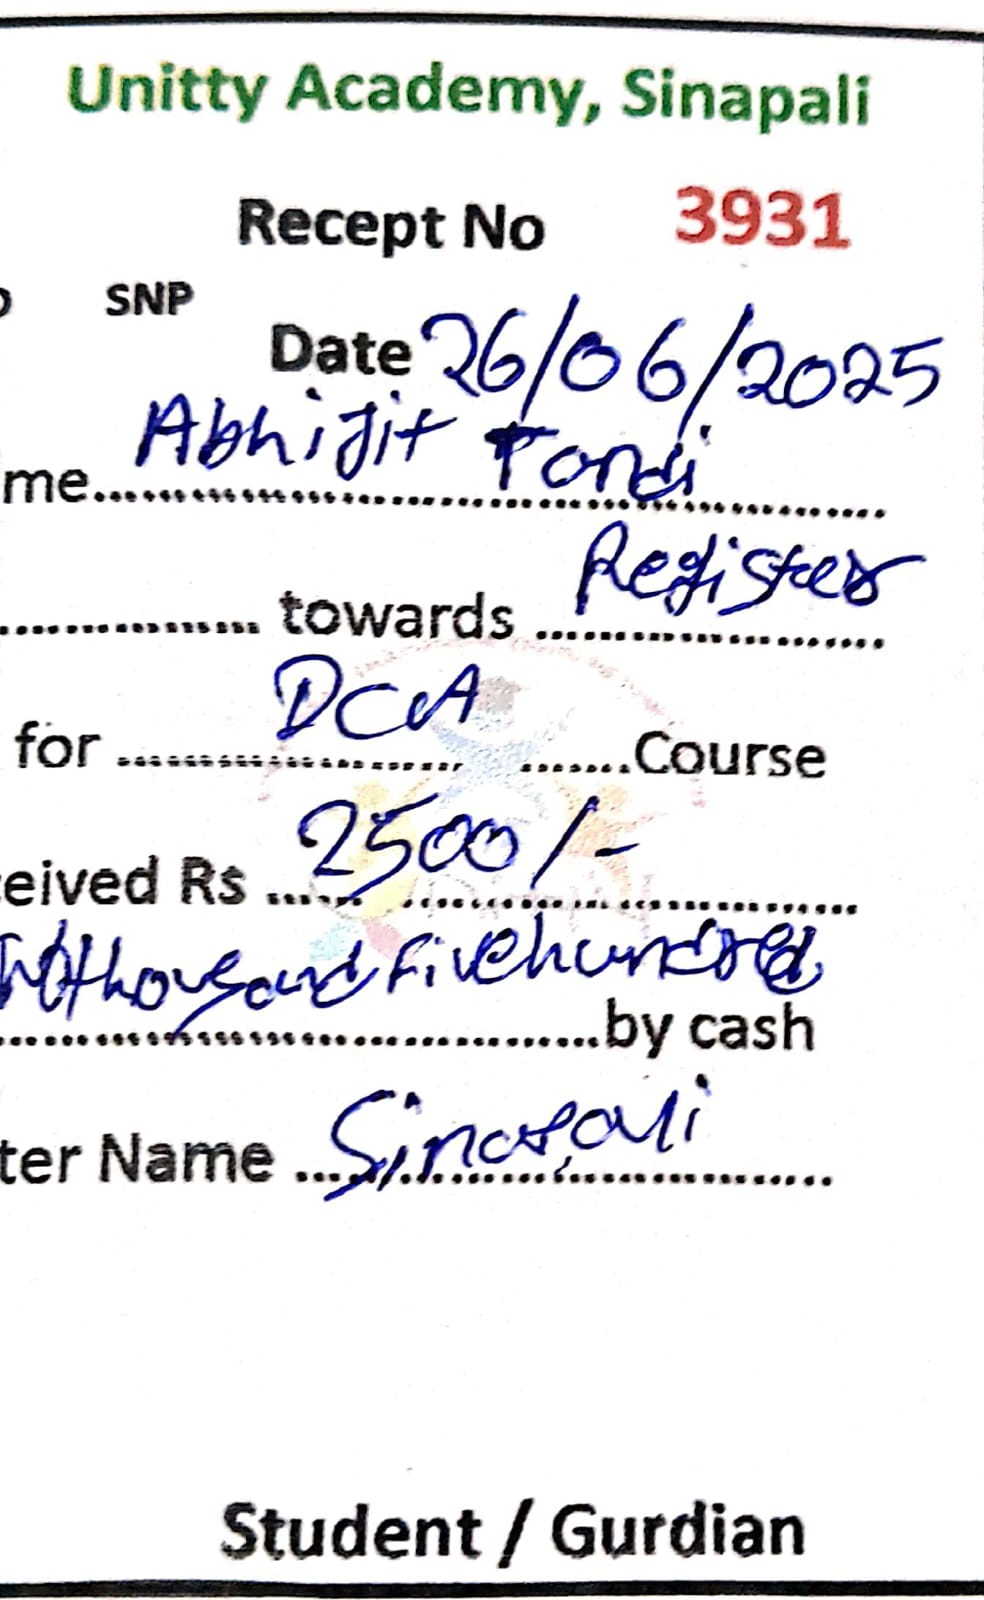 Unitty Academy, Sinapali
Recept No 3931
SNP
Date 26/06/2025
me.......... Abhijit Tandi
.......... towards .......... Register
for .......... DCA .......... Course
eived Rs .......... 2500/-
thousand five hundred
..........by cash
ter Name .......... Sinapali
Student / Gurdian